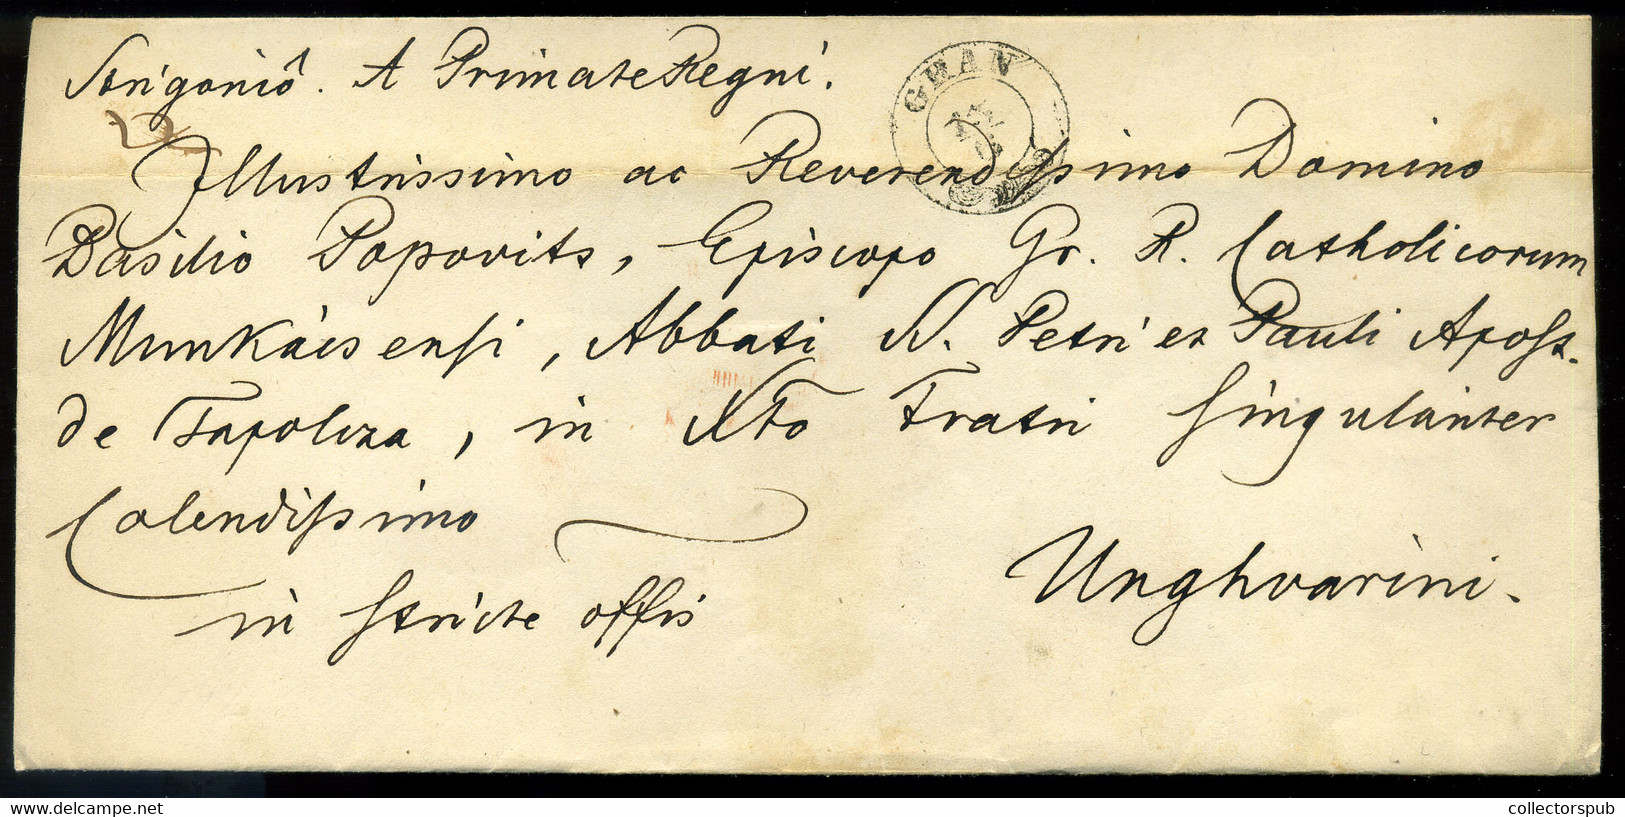 Strigoniô. A Primate Regni.
GRAN
Illustrissimo ac Reverendissimo Domino
Basilio Popovits, Episcopo Gr. R. Catholicorum
Munkácsensi, Abbati S. Petri et Pauli Apost.
de Tapolcza, in Xto Fratri singulariter
Colendissimo
Unghvarini.
in stricte offis
collectorspub